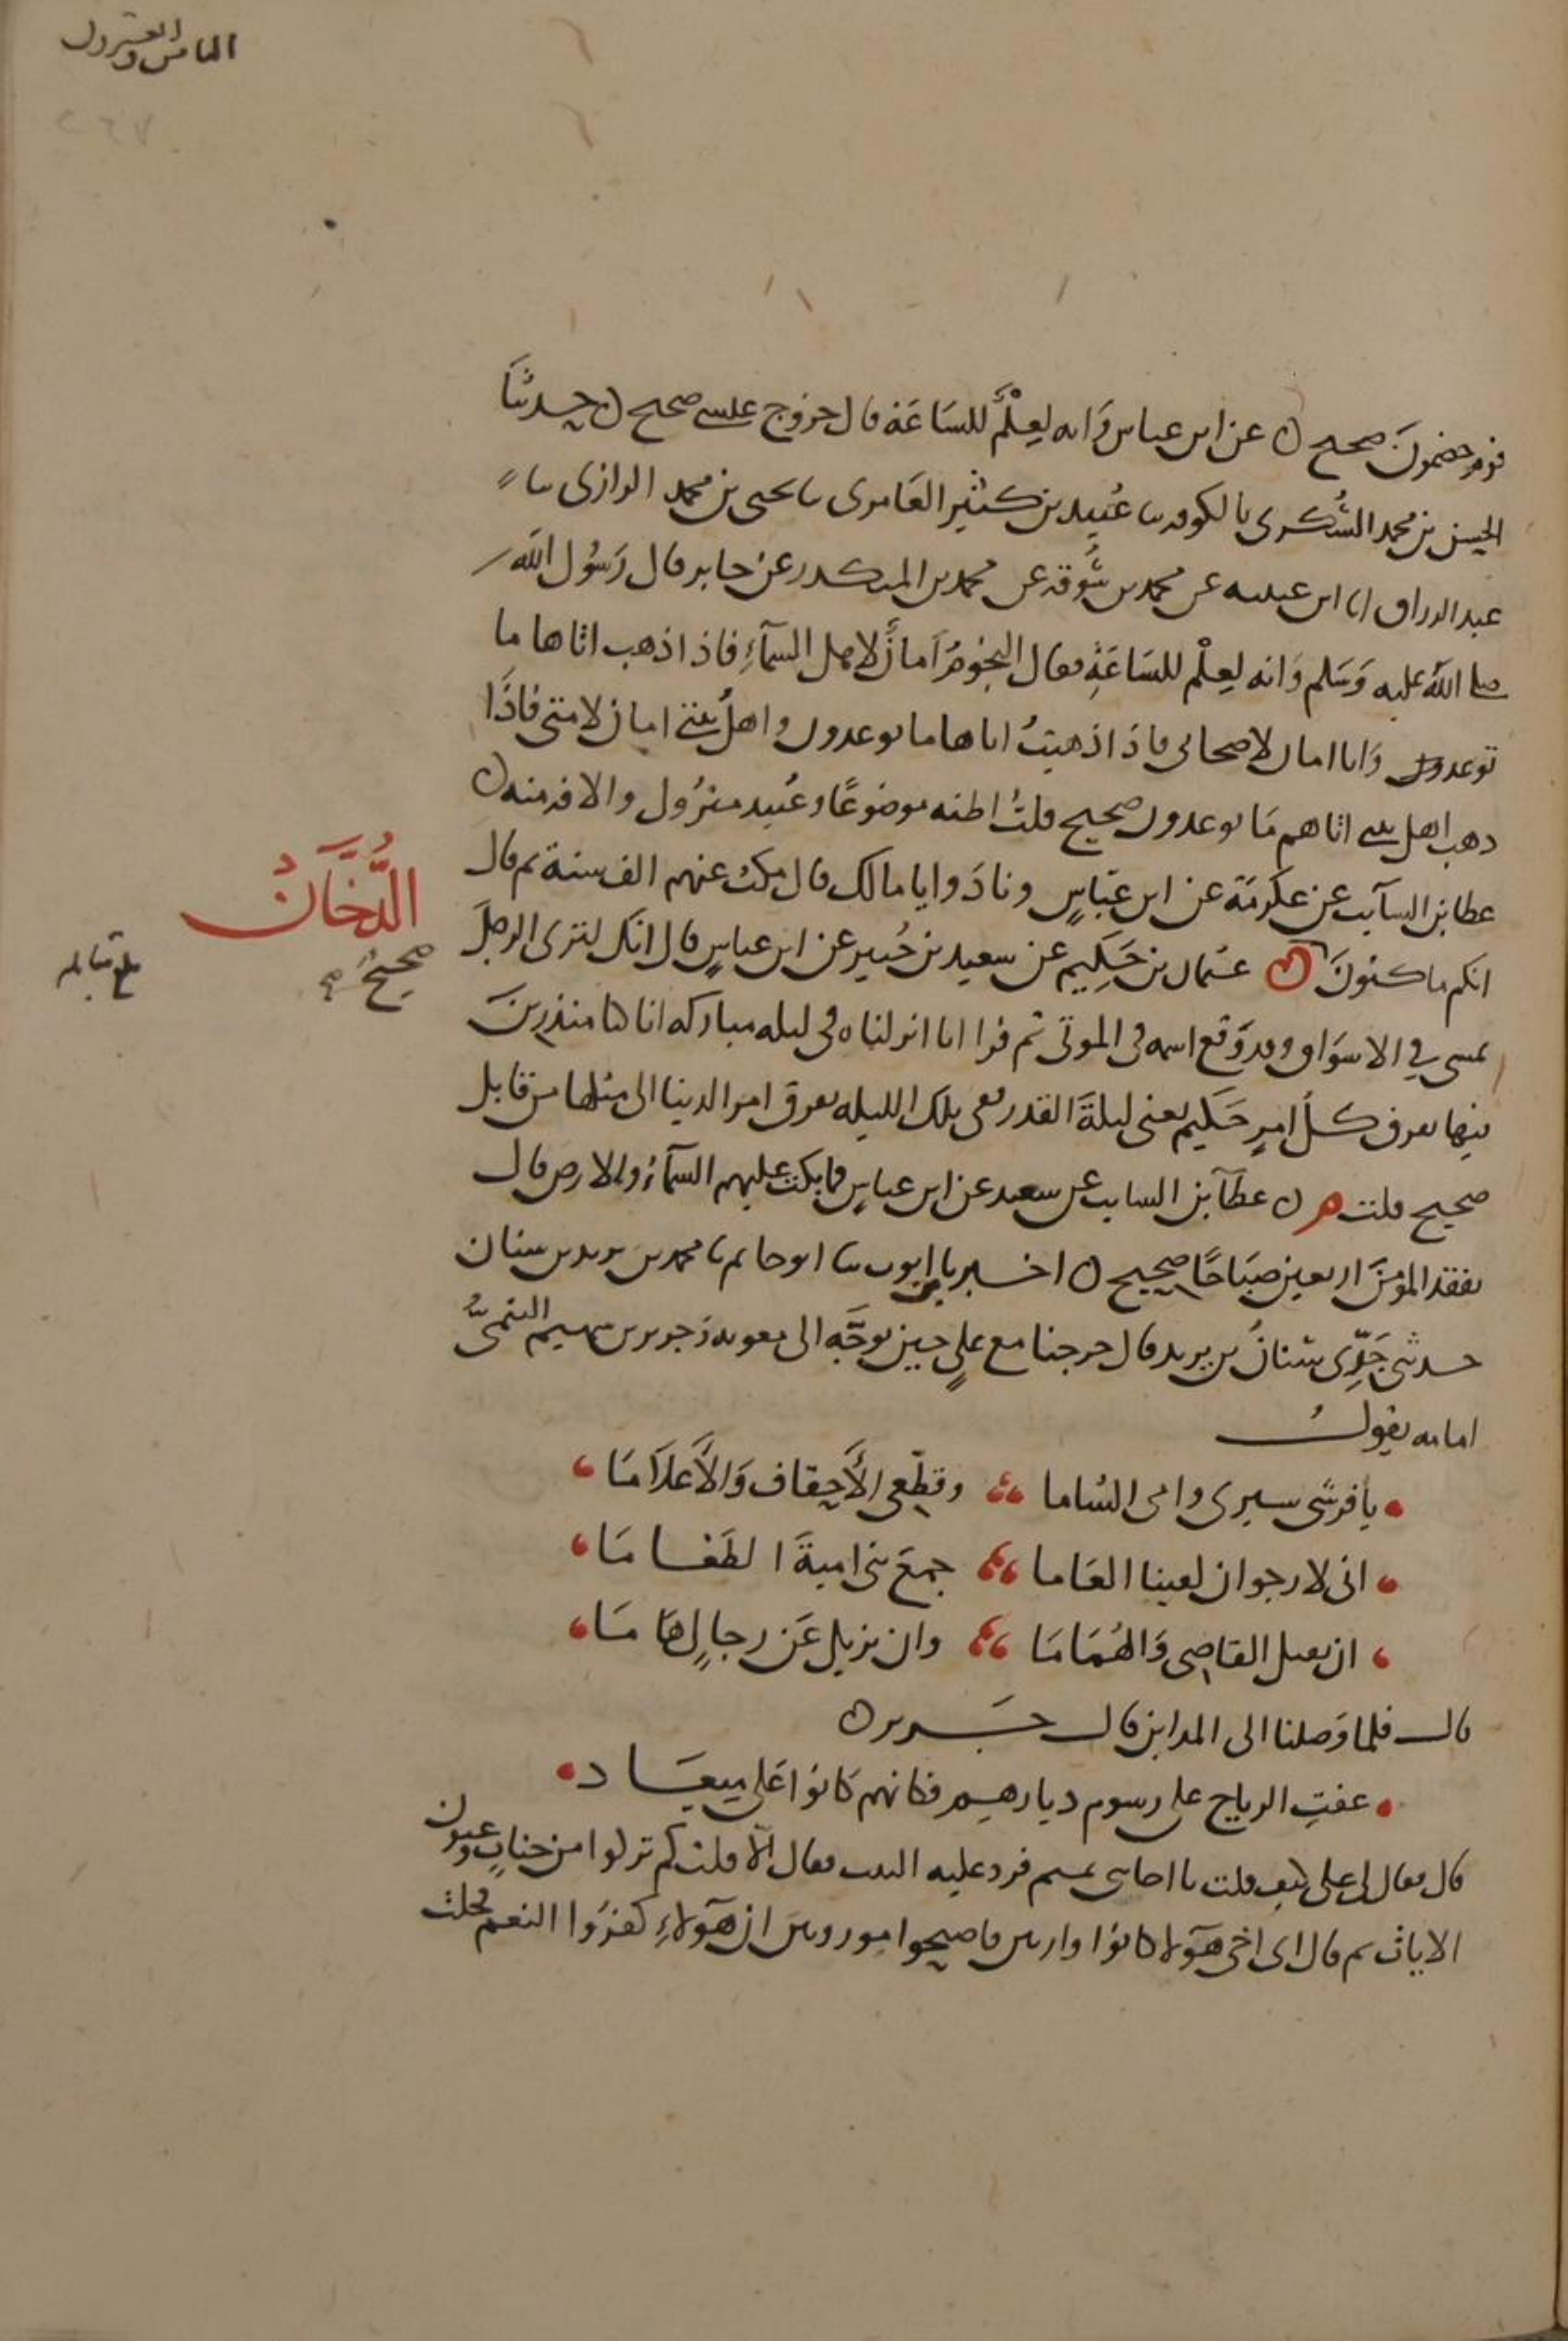 الثامن والعشرون
٢٦٧
قوم خصمون صحيح ن عن ابن عباس وَانه لعِلْمٌ للسَاعَة قال خروج عيسى صحيح ن حدثنا
الحسن بن محمد السُّكرى بالكوفه سا عُبيد بن كثير العَامرى سا يحيى بن محمد الدارى سا
عبد الرزاق انا ابن عيينه عن محمد بن سُوقه عن محمد بن المنكدر عن جابر قال رَسُول الله
صلى الله عليه وَسَلم وَانه لعِلْم للسَاعَةِ فقال النجومُ اَمانٌ لاهل السمآءِ فاذا ذهب اتاها ما
توعدون وَانا امان لاصحابى فاذا ذهبتُ اتاها ما يوعدون واهلُ بيتى امان لامتى فاذَا
ذهب اهل بيتى اتاهم مَا يوعدون صحيح قلتُ اظنه موضوعًا وعُبيد متروُك والافه منه ن
عطا بن السآئب عن عكرمَة عن ابن عبّاسٍ ونادَوا يا مالك قال مكث عنهم الف سنة ثم قال
انكم ماكثونَ ن عثمان بن حَكِيم عن سعيد بن جُبير عن ابن عباسٍ قال انك لترى الرجلَ
الدُّخَانُ
صحيحٌ م
بلغ مقابله
يمشى في الاسوَاق وقد وَقع اسمه فى الموتى ثم قرا انا انزلناه فى ليله مباركه انا كنا منذرينَ
فيها يفرق كلُ امرٍ حَكيم يعنى ليلةَ القدر ففى تلك الليله يفرق امر الدينا الى مثلها من قابل
صحيح قلت م ن عطآ بن السايب عن سعيد عن ابن عباسٍ فما بكت عليهم السمآءُ والارض قال
بفقد المؤمنَ اربعين صبَاحًا صحيح ن اخبرنا ابو سا ابو حاتم نا محمد بن يزيد بن سنان
حدثنى جَدِّى سنانُ بن يزيد قال خرجنا مع عليٍ حين توجَّه الى معويه وَجرير بن سهم التميمىُّ
امامه يقولُ
يا فرسى سيرى وامى الشاما وقطّعى الأَحقافَ وَالأَعلاَمَا
انى لارجو ان لقينا العَاما جمعَ بنى اميةَ الطَغَامَا
ان نقتل القاصى وَالهُمَامَا وان نزيل عَن رجالٍ هَامَا
قال فلما وَصلنا الى المداين قال جَرير ن
عفتِ الرياح على رسوم ديارهم فكانهم كانوا عَلى ميعَاد
قال فقال لى على كيف قلت يا اخا بنى تميم فرد عليه البيت فقال اَلا قلت كم تركوا من جناتٍ وعيون
الايات ثم قال اى اخى هَوُلا كانوا وارثين فاصبحوا موروثين ان هَؤلاءِ كفرُوا النعم فحلت